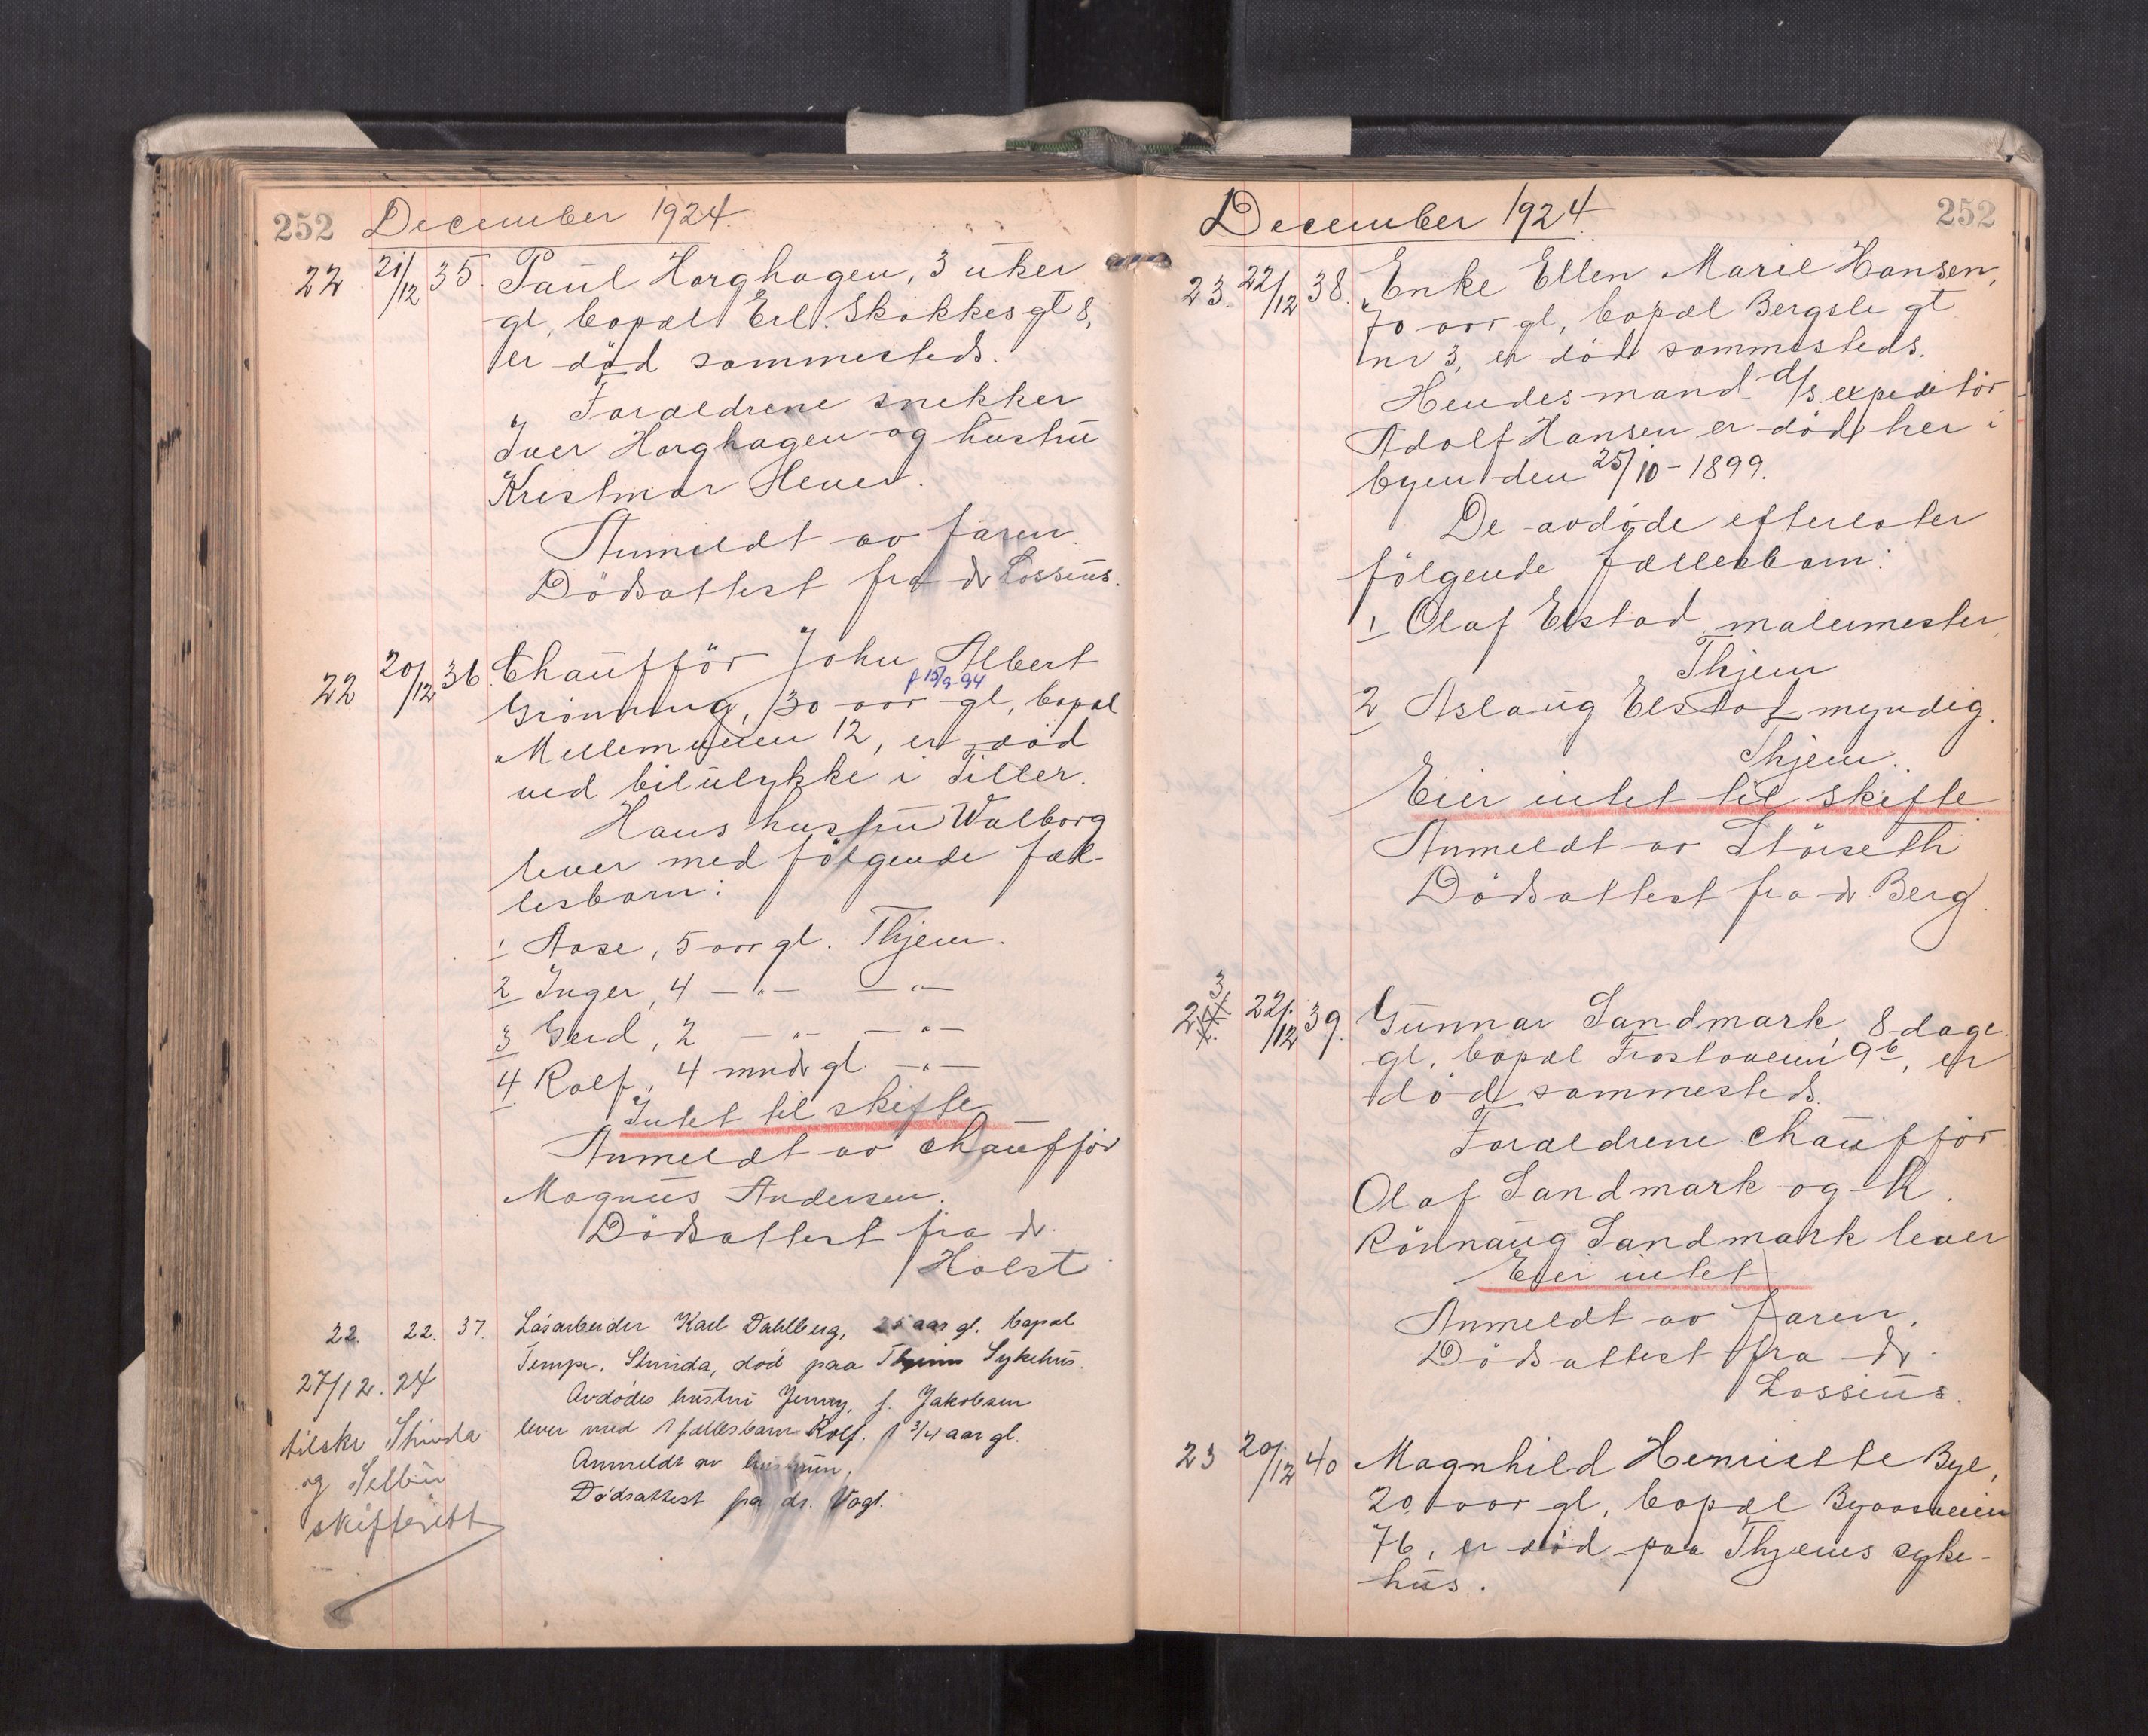 252 December 1924.
22 21/12 35. Paul Horghagen, 3 uker
gl, bopæl Erl. Skakkes gt 8,
er död sammesteds.
Foraeldrene snekker
Iver Horghagen og hustru
lever.
Anmeldt av faren.
Dödsattest fra dr Lossius.
22 20/12 36 Chaufför John Albert
f 15/9-94
Grönning, 30 aar gl, bopæl
Mellemveien 12, er död
ved bilulykke i Tiller.
Hans hustru Walborg
lever med fölgende fæl-
lesbarn:
1 Aase, 5 aar gl. Thjem.
2 Inger, 4 -"- -"-
3 Gerd, 2 -"- -"-
4 Rolf, 4 mndr gl. -"-
Intet til skifte
Anmeldt av chaufför
Magnus Andersen.
Dödsattest fra dr.
Holst
22. 22. 37. Løsarbeider Karl Dahlberg, 25 aar gl. bopæl
Tempe, Strinda, död paa Thjems Sykehus.
Avdödes hustru Jenny, f. Jakobsen
lever med 1 fællesbarn Rolf. 1 3/4 aar gl.
Anmeldt av hustruen,
Dødsattest fra dr. Vogt.
27/12. 24
tilskr Strinda
og Selbu
skifterett
December 1924. 252
23. 22/12 38. Enke Ellen Marie Hansen,
70 aar gl, bopæl Bergsli gt
nr 3, er död sammesteds.
Hendes mand d/s. expeditör
Adolf Hansen er död her i
byen den 25/10-1899.
De avdöde efterlater
fölgende fællesbarn:
1 Olaf Elstad malermester,
Thjem
2 Aslaug Elstad myndig.
Thjem.
Eier intet til skifte
Anmeldt av Störseth
Dödsattest fra dr. Berg.
23. 22/12 39. Gunnar Sandmark, 8 dage
gl, bopæl Frostaveien 9b, er
död sammesteds.
Foraeldrene chaufför
Olaf Sandmark og h.
Rönnaug Sandmark lever
Eier intet
Anmeldt av faren.
Dödsattest fra dr.
Lossius.
23 20/12 40 Magnhild Henriette Bye,
20 aar gl, bopæl Byaasveien
76, er död paa Thjems syke-
hus.